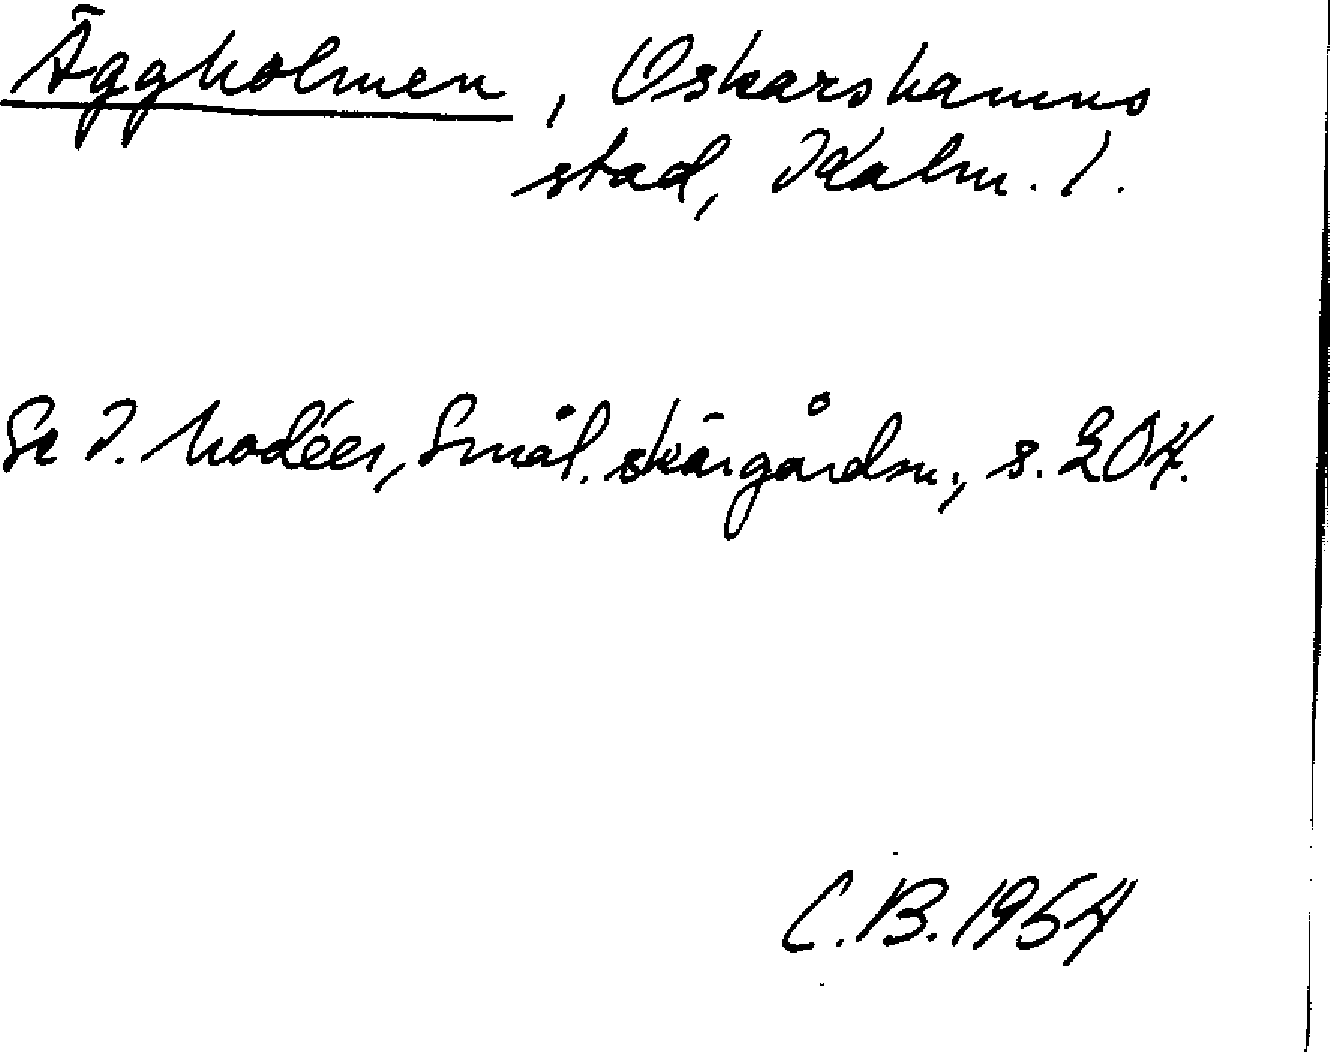 Äggholmen, Oskarshamns
stad, Kalm. l.
Se I. Modéer, Smål. skärgårdsn., s. 204.
C.B. 1954